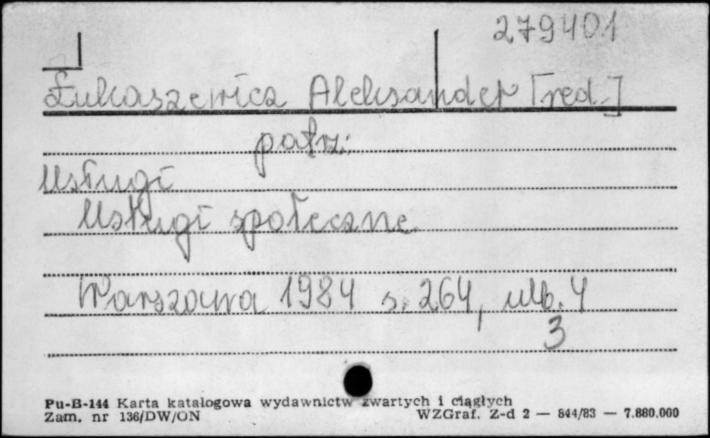 279401
Łukaszewicz Aleksander [red.]
patrz:
Usługi
Usługi społeczne.
Warszawa 1984 s. 264, ulb. 4
3
Pu-B-144 Karta katalogowa wydawnictw zwartych i ciągłych
Zam. nr 136/DW/ON WZGraf. Z-d 2 — 844/83 — 7.880.000